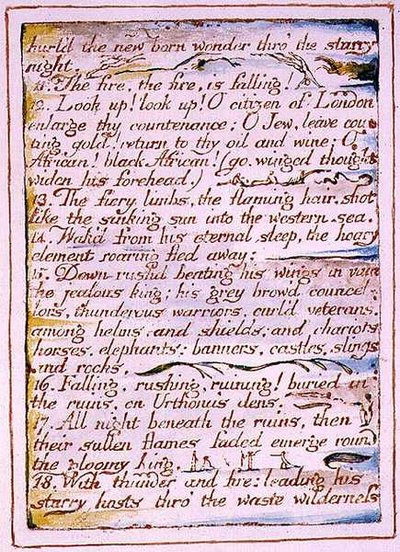 hurl'd the new born wonder thro' the starry
night.
11. The fire, the fire, is falling!
12. Look up! look up! O citizen of London
enlarge thy countenance; O Jew, leave coun-
ting gold! return to thy oil and wine; O
African! black African! (go. winged thought
widen his forehead.)
13. The fiery limbs, the flaming hair, shot
like the sinking sun into the western sea.
14. Wak'd from his eternal sleep, the hoary
element roaring fled away:
15. Down rush'd beating his wings in vain
the jealous king; his grey brow'd council-
lors, thunderous warriors, curl'd veterans,
among helms, and shields, and chariots
horses, elephants: banners, castles, slings
and rocks,
16. Falling, rushing, ruining! buried in
the ruins, on Urthona's dens.
17. All night beneath the ruins, then
their sullen flames faded emerge round
the gloomy king,
18. With thunder and fire: leading his
starry hosts thro' the waste wilderness